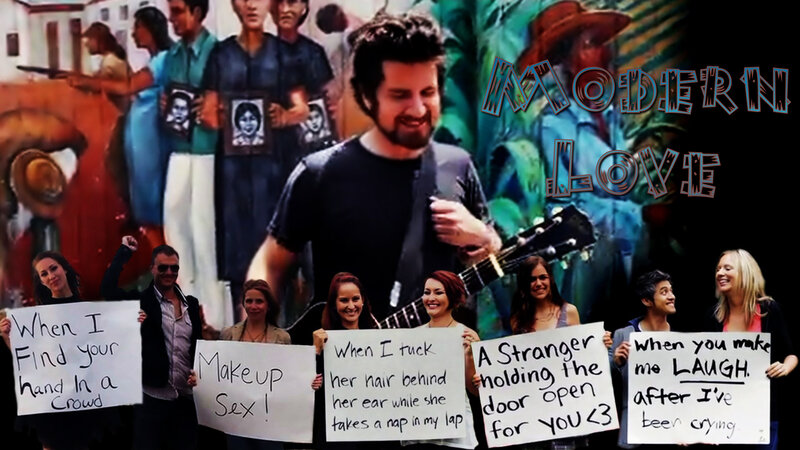 Modern
Love
When I
Find your
hand In a
Crowd
Makeup
Sex!
When I tuck
her hair behind
her ear while she
takes a nap in my lap
A Stranger
holding the
door open
for you <3
When you make
me LAUGH.
after I've
been crying.